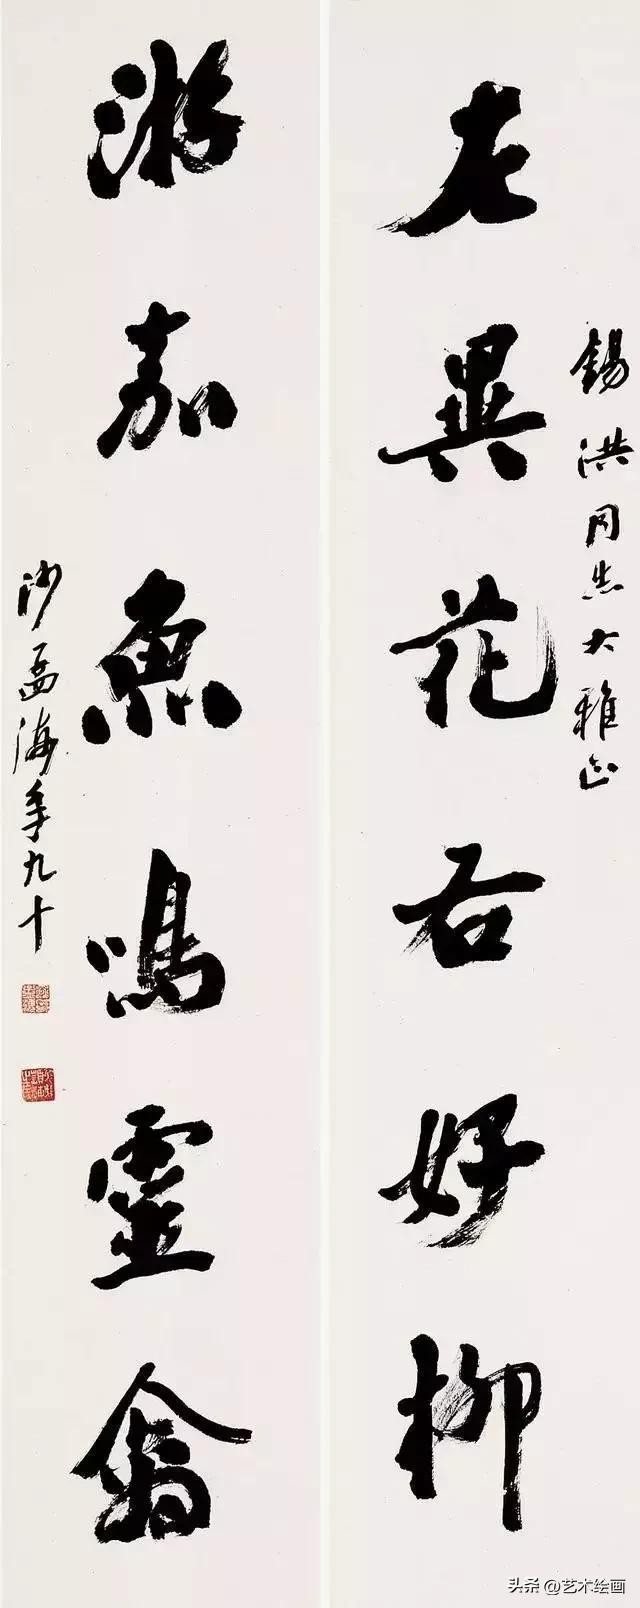 左異花右好柳
錫洪同志大雅正
游嘉魚鳴靈禽
沙孟海年九十
头条 @艺术绘画